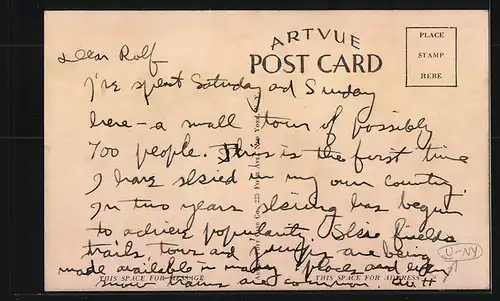 ARTVUE
POST CARD
PLACE
STAMP
HERE
Dear Rolf
I've spent Saturday and Sunday
here - a small town of possibly
700 people. This is the first time
I have skied in my own country.
In two years skiing has begun
to achieve popularity. Skie fields
trails, tows and jumps are being
made available in many places and
snow trains are common. Art
THIS SPACE FOR MESSAGE
THIS SPACE FOR ADDRESS
U-NY